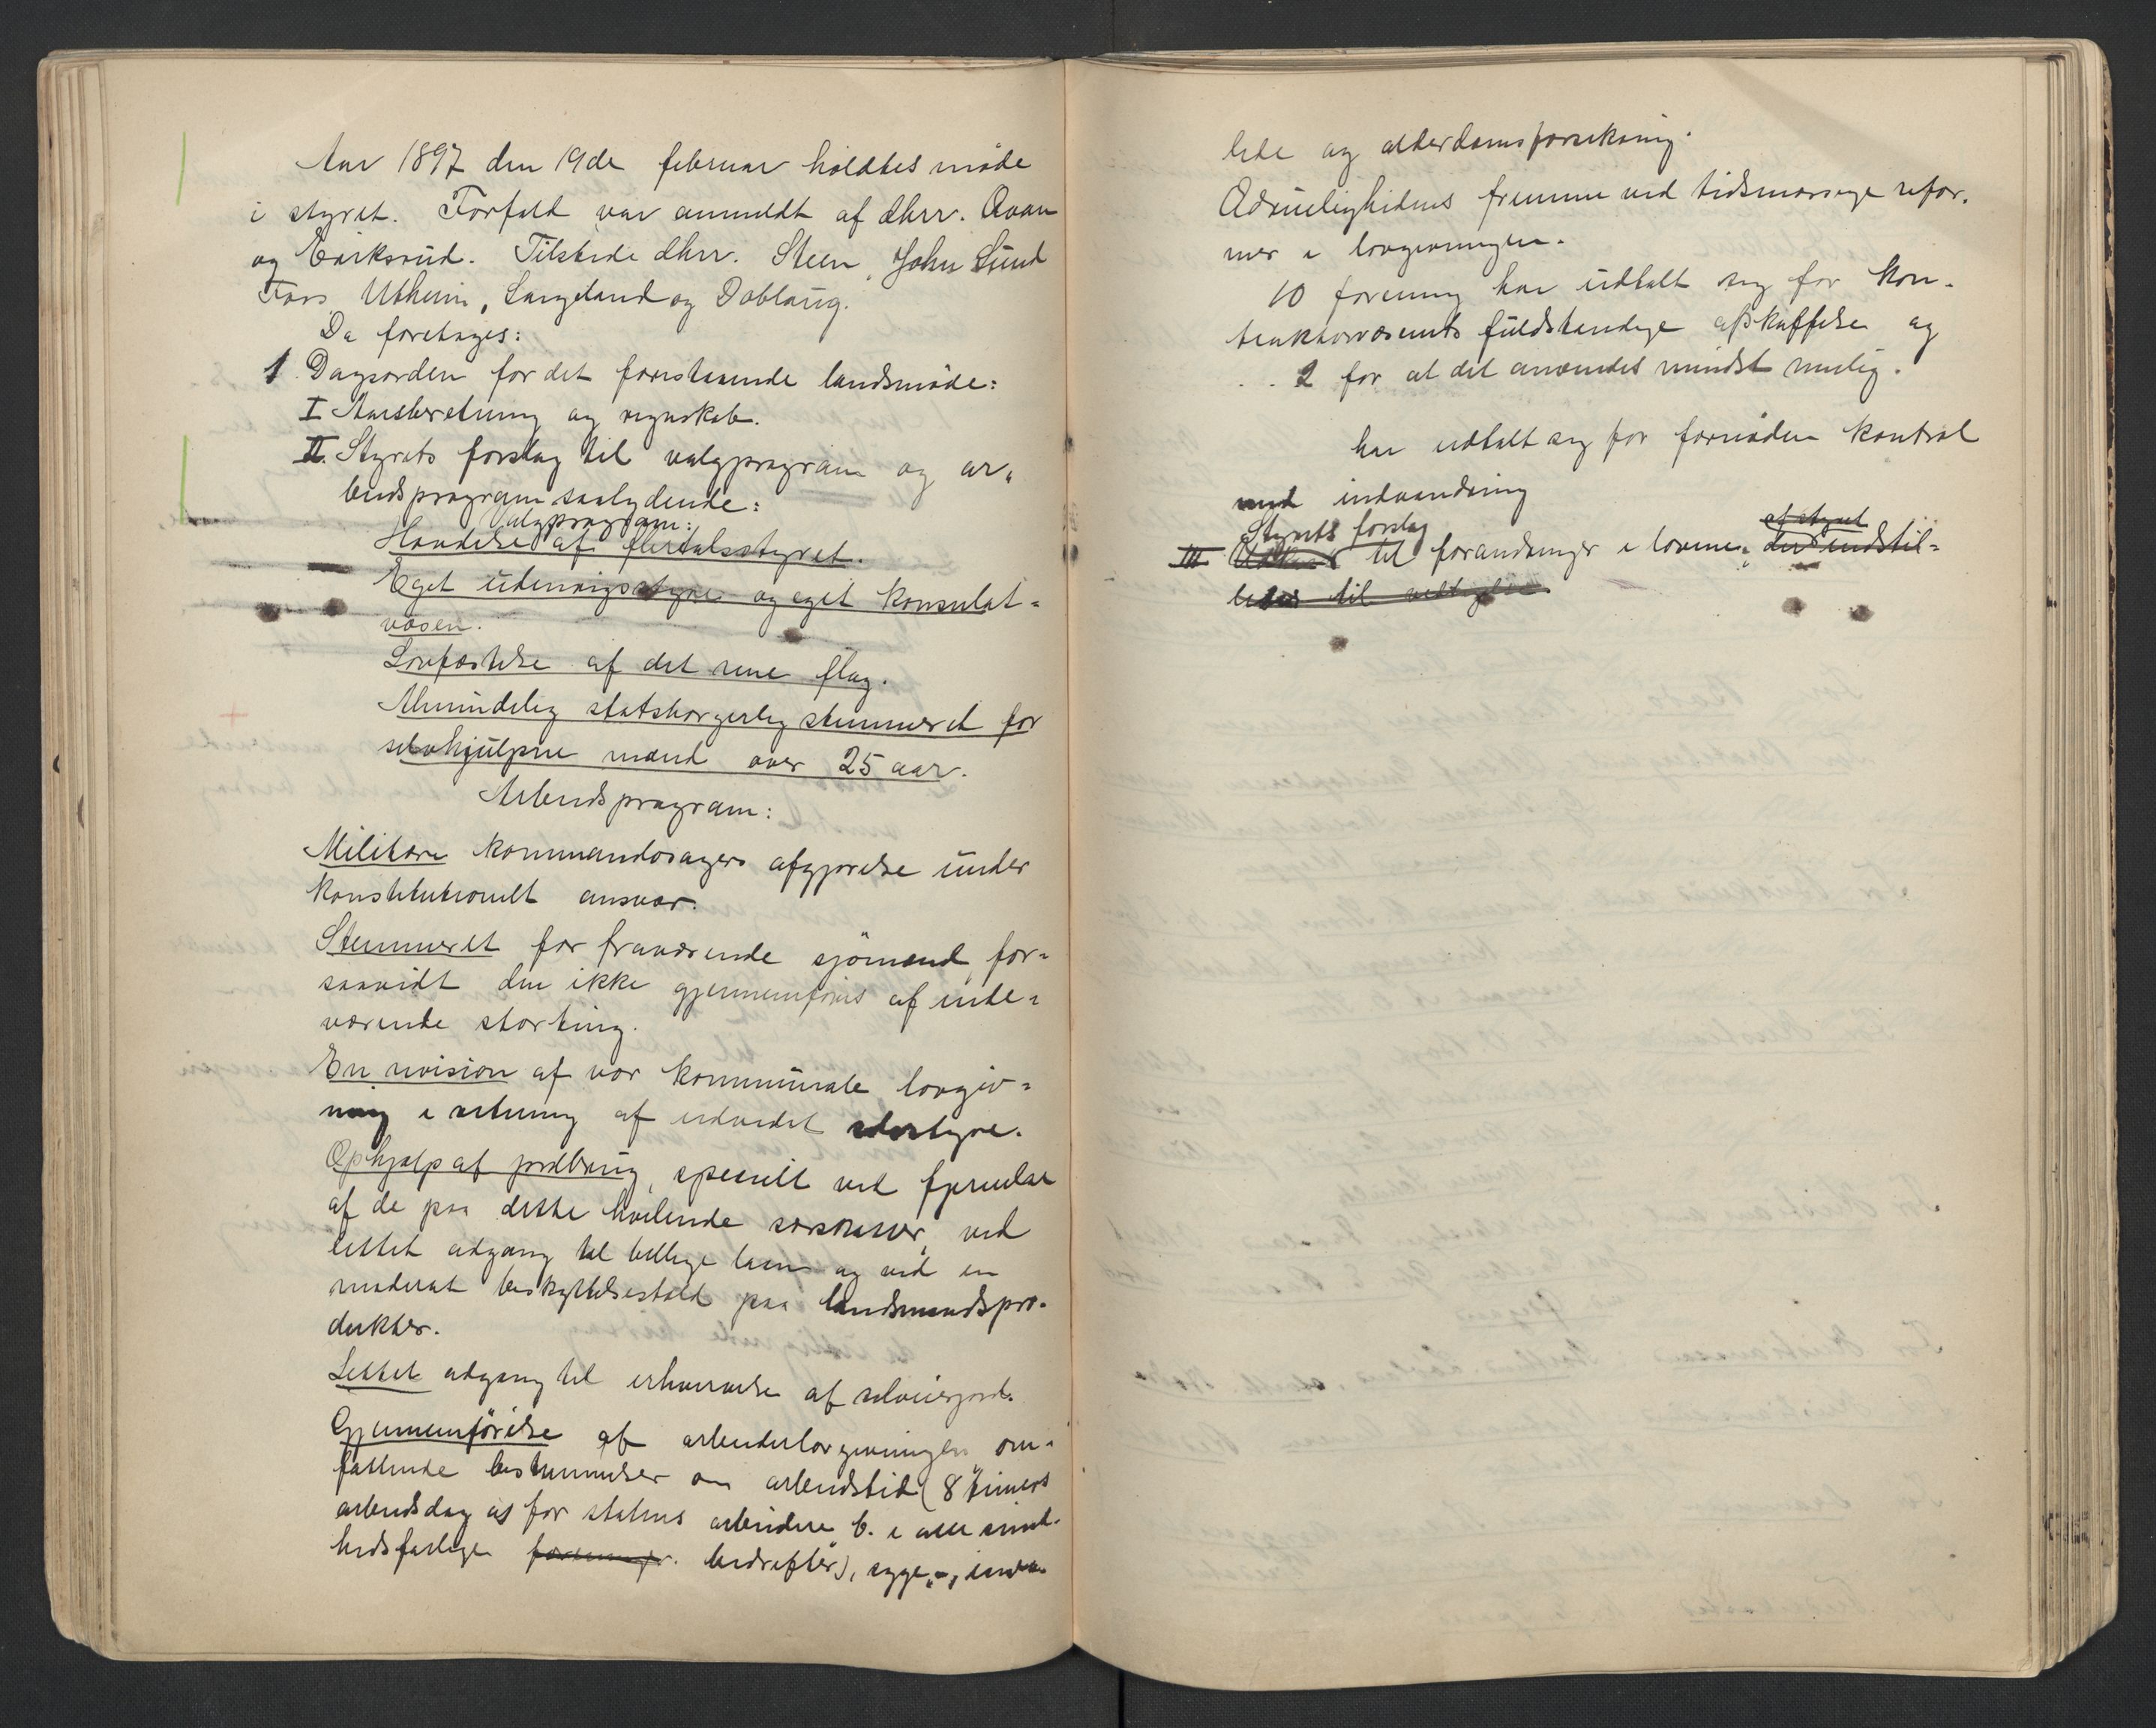 Aar 1897 den 19de februar holdtes møde
i styret. Forfald var anmeldt af dhrr. Qvam
og Eriksrud. Tilstede dhrr. Steen, John Lund
Foss, Utheim, Langeland og Doblaug.
Da foretages:
1. Dagsorden for det forestaaende landsmøde:
I Aarsberetning og regnskab.
II. Styrets forslag til valgprogram og ar-
beidsprogram saalydende:
Valgprogram:
Hævdelse af flertalsstyret.
Eget udenrigsstyre og eget konsulat-
væsen.
Lovfæstelse af det rene flag.
Almindelig statsborgerlig stemmeret for
selvhjulpne mænd over 25 aar.
Arbeidsprogram:
Militære kommandosagers afgjørelse under
konstitutionelt ansvar.
Stemmeret for fraværende sjømænd, for-
saavidt den ikke gjennemføres af inde-
værende storting.
En revision af vor kommunale lovgiv-
ning i retning af udvidet selvstyre.
Ophjælp af jordbrug, specielt ved fjernelse
af de paa dette hvilende særskatter, ved
lettet adgang til billige laan og ved en
moderat beskyttelsestold paa landmandspro-
dukter.
Lettet adgang til erhvervelse af selveierjord.
Gjennemførelse af arbeiderlovgivningen om-
fattende bestemmelser om arbeidstid (8 timers
arbeidsdag a) for statens arbeidere b. i alle sund-
hedsfarlige bedrifter), syge-,
lede og alderdomsforsikring.
Ædruelighedens fremme ved tidsmæssige refor-
mer i lovgivningen.
10 forening har udtalt sig for kon-
traktørvæsenets fuldstændige afskaffelse og
2 for at det anvendes mindst mulig.
har udtalt sig for fornøden kontrol
med indvandring
Styrets forslag
af styret
III til forandringer i lovene, der indstil-
les til vedtagelse